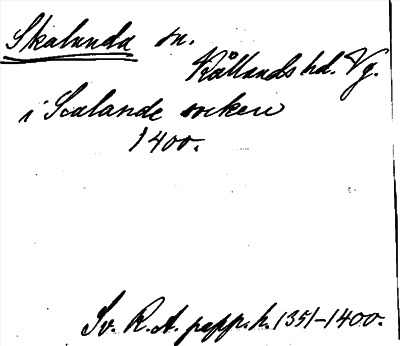 Skalunda sn.
Kållands hd. Vg.
i Scalande socken
1400.
Sv. R. A. papp. h. 1351-1400.